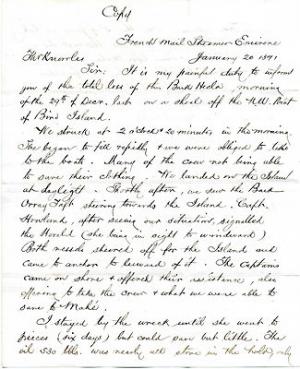 Copy
French Mail Steamer
January 20 1891
Thos Knowles
Sir: It is my painful duty to inform
you of the total loss of the Bark Hecla, morning
of the 29th of Decr. last on a shoal off the N.W. Point
of Bird Island.
We struck at 2 o'clock & 20 minutes in the morning.
She began to fill rapidly & we were obliged to take
to the boats. Many of the crew not being able
to save their clothing. We landed on the Island
at daylight. Shortly after, we saw the Bark
Oray Taft steering towards the Island. Capt.
Howland, after seeing our situation, signalled
the World (she being in sight to windward)
Both vessels steered off for the Island and
came to anchor to leeward of it. The Captains
came on shore & offered their assistance, also
offering to take the crew & what we were able to
save to Mahé.
I stayed by the wreck until she went to
pieces (six days) but could save but little. The
oil 530 bbls. was nearly all stove in the hold, only